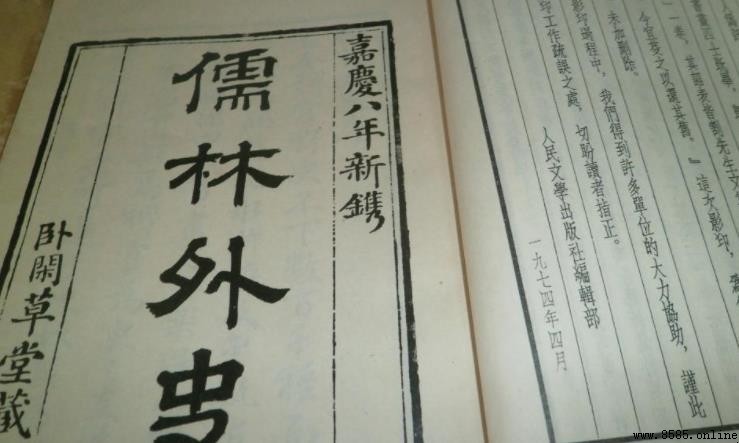 這次影印，
未加刪除。
影印過程中，我們得到許多單位的大力協助，謹此
印工作疏誤之處，切盼讀者指正。
人民文學出版社編輯部
一九七四年四月
嘉慶八年新鐫
儒林外史
卧閑草堂藏
www.9595.online